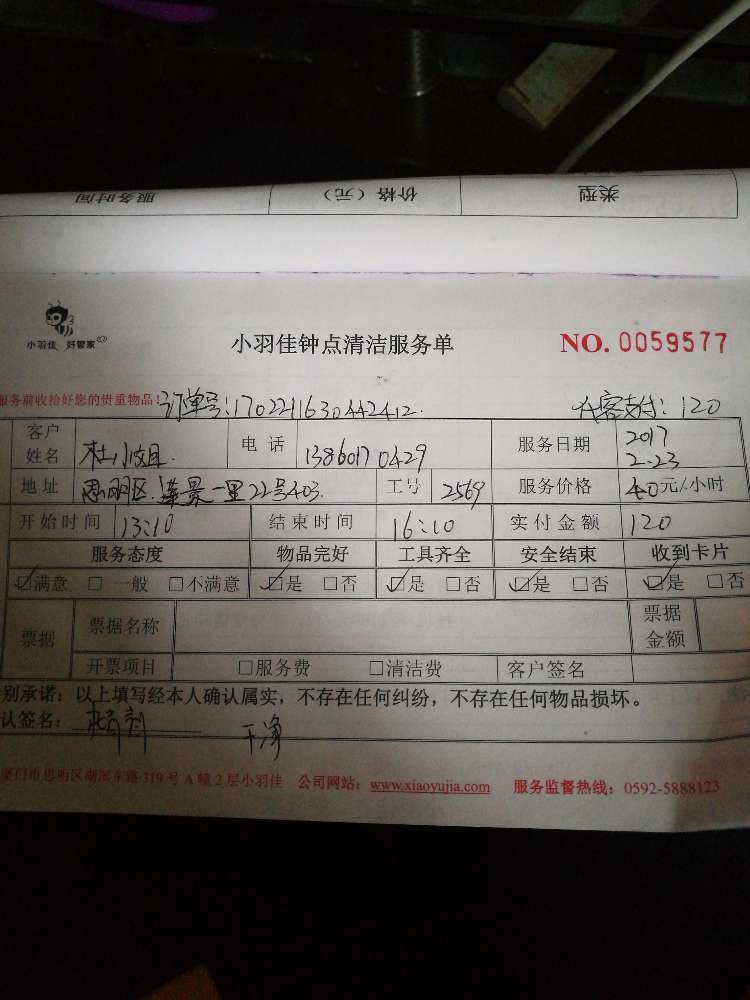 类型 价格（元） 服务时间
小羽佳 好管家
小羽佳钟点清洁服务单 NO. 0059577
服务前收拾好您的贵重物品！ 订单号:170221163044２412. 代客支付: 120
客户姓名 杜小姐 电话 13860170429 服务日期 2017 2-23
地址 思明区.莲景一里22号403. 工号 2569 服务价格 40元/小时
开始时间 13:10 结束时间 16:10 实付金额 120
服务态度 物品完好 工具齐全 安全结束 收到卡片
☑满意 □一般 □不满意 ☑是 □否 ☑是 □否 ☑是 □否 ☑是 □否
票据 票据名称 票据金额
开票项目 □服务费 □清洁费 客户签名
别承诺：以上填写经本人确认属实，不存在任何纠纷，不存在任何物品损坏。
认签名： 干净
厦门市思明区湖滨东路319号A幢2层小羽佳 公司网站：www.xiaoyujia.com 服务监督热线：0592-5888123